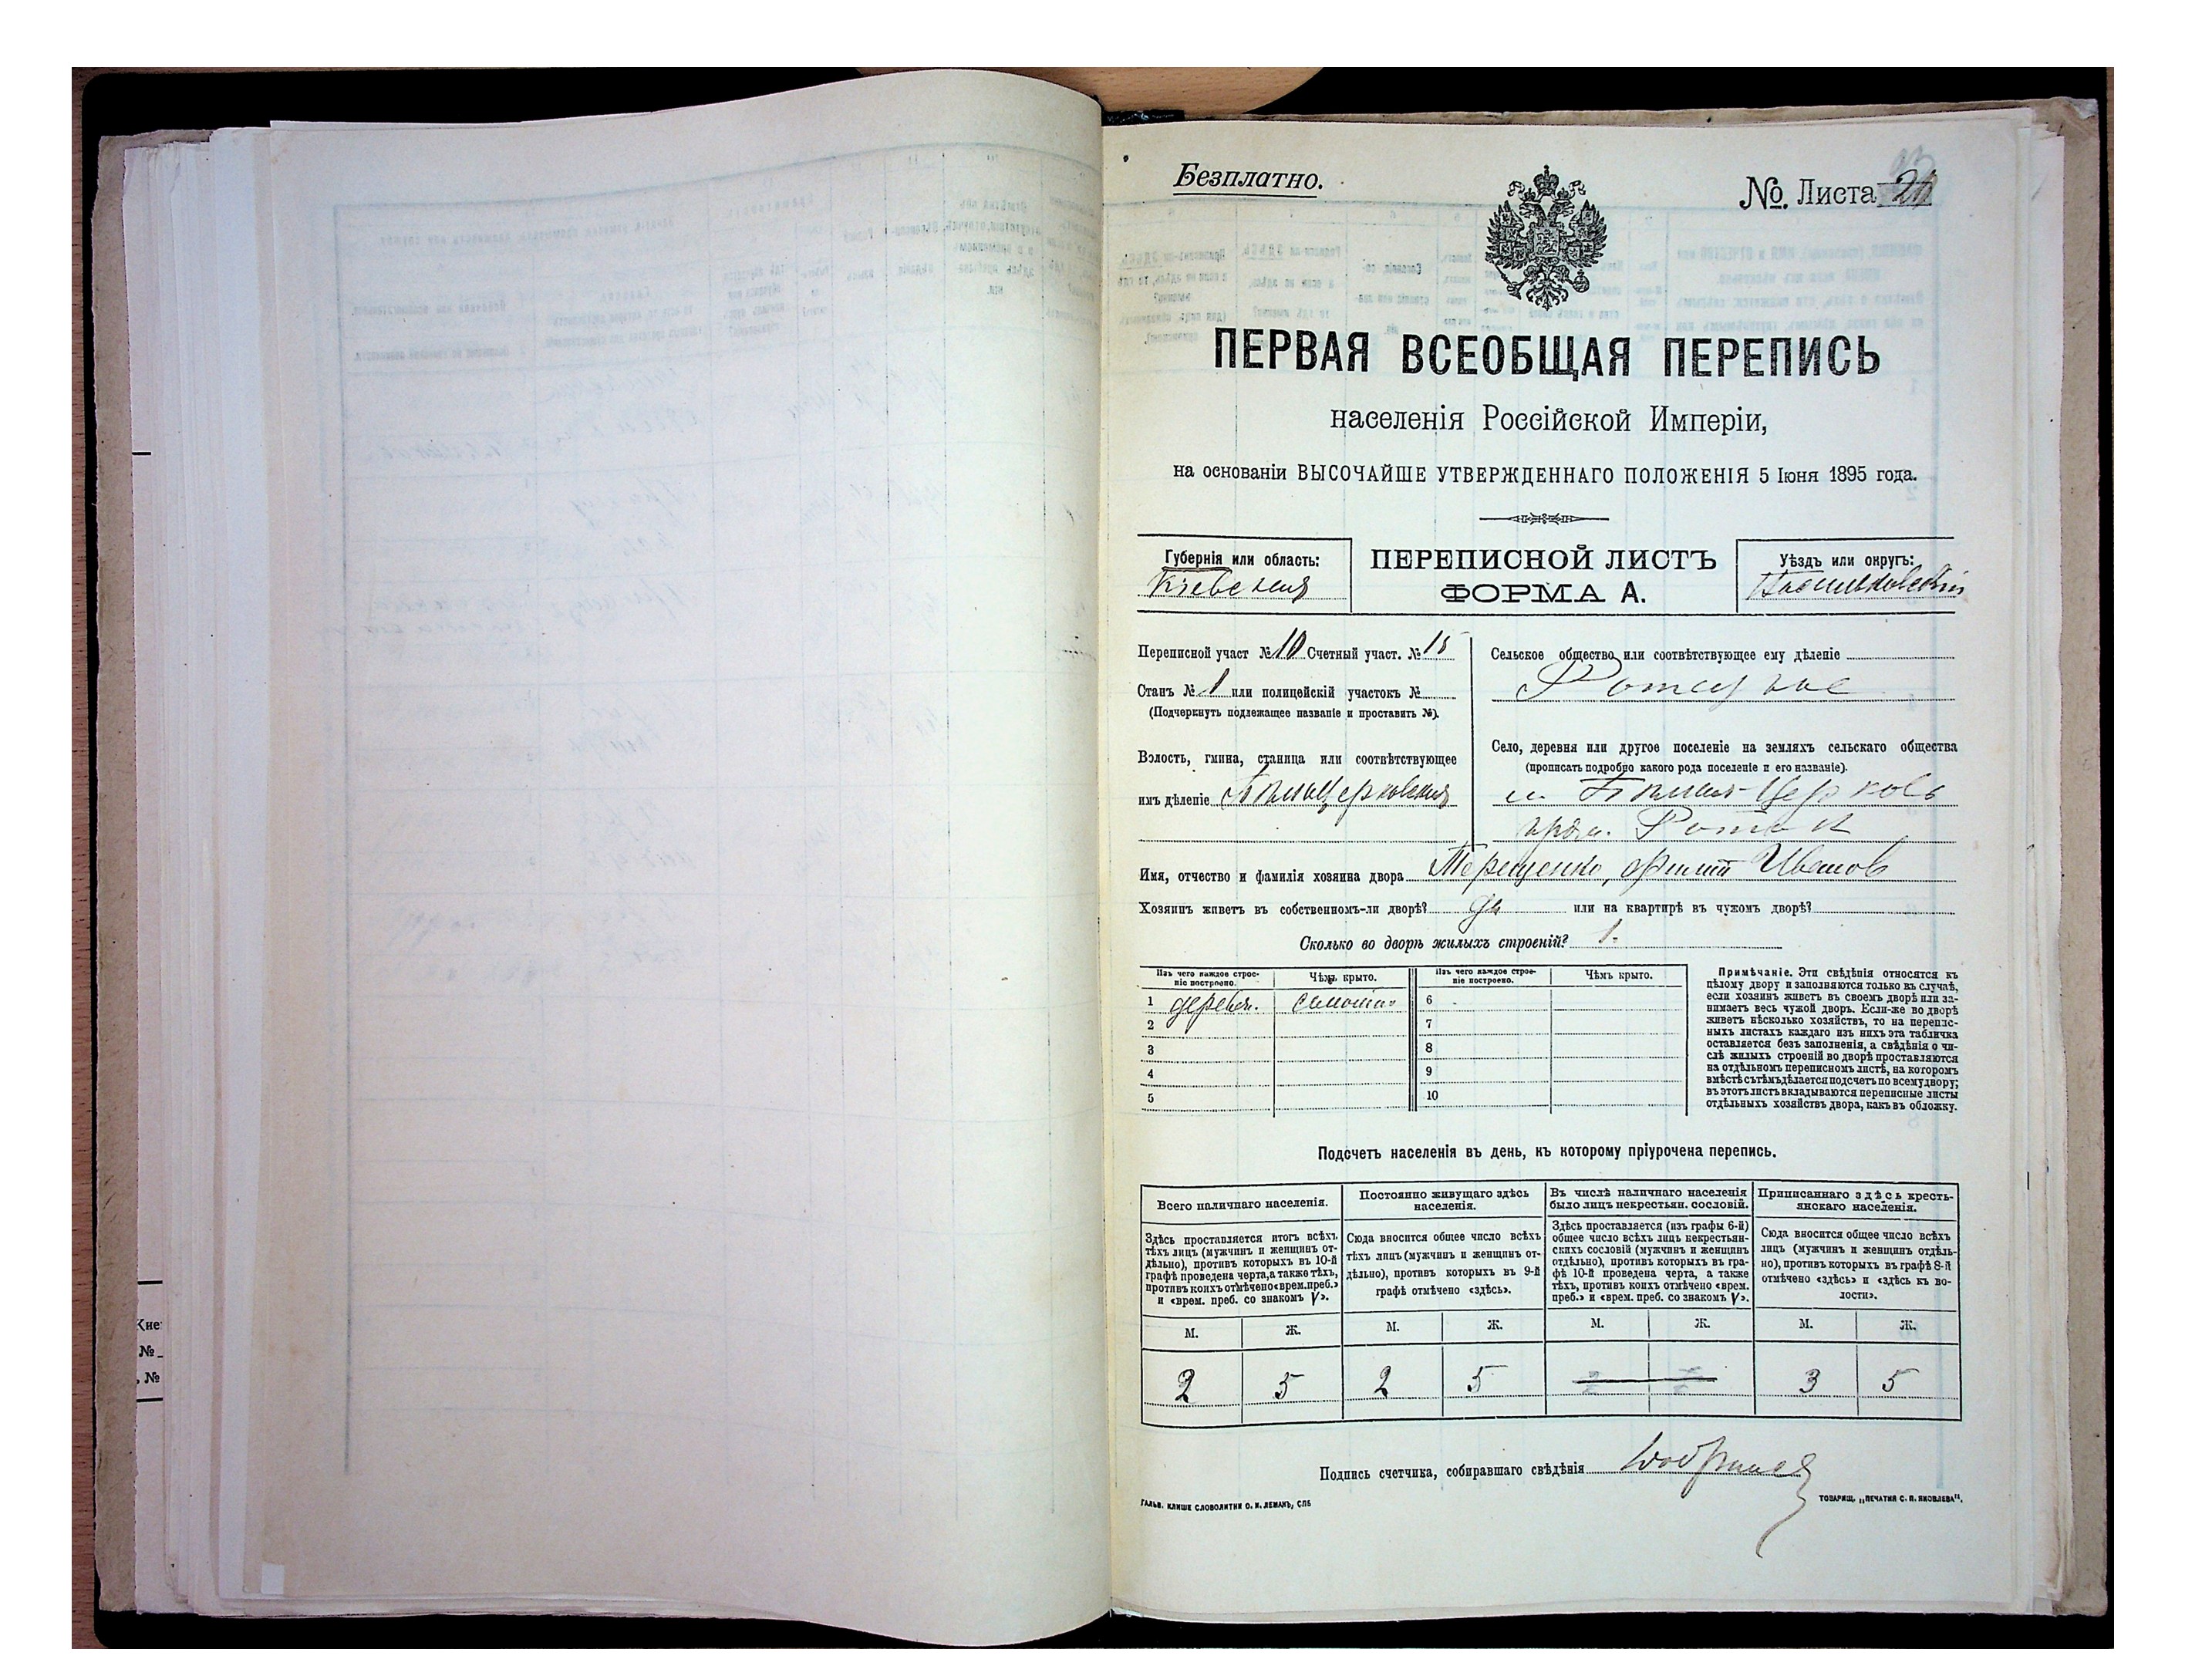 Безплатно.
№. Листа
ПЕРВАЯ ВСЕОБЩАЯ ПЕРЕПИСЬ
населенія Россійской Имперіи,
на основаніи ВЫСОЧАЙШЕ УТВЕРЖДЕННАГО ПОЛОЖЕНІЯ 5 Іюня 1895 года.
Губернія или область:
Кіевская
ПЕРЕПИСНОЙ ЛИСТЪ
ФОРМА А.
Уѣздъ или округъ:
Васильковскій
Переписной участ № 10 Счетный участ. № 15
Станъ № 1 или полицейскій участокъ №
(Подчеркнуть подлежащее названіе и проставить №).
Волость, гмина, станица или соотвѣтствующее
имъ дѣленіе Бѣлоцерковская
Сельское общество или соотвѣтствующее ему дѣленіе
Село, деревня или другое поселеніе на земляхъ сельскаго общества
(прописать подробно какого рода поселеніе и его названіе).
м Бѣлая-Церковь
Имя, отчество и фамилія хозяина двора Терещенко, Филип Иванов
Хозяинъ живетъ въ собственномъ-ли дворѣ? да или на квартирѣ въ чужомъ дворѣ?
Сколько во дворѣ жилыхъ строеній? 1.
Изъ чего каждое строе-
ніе построено.
Чѣмъ крыто.
Изъ чего каждое строе-
ніе построено.
Чѣмъ крыто.
1 деревян. соломою 6
2 7
3 8
4 9
5 10
Примѣчаніе. Эти свѣдѣнія относятся къ
цѣлому двору и заполняются только въ случаѣ,
если хозяинъ живетъ въ своемъ дворѣ или за-
нимаетъ весь чужой дворъ. Если-же во дворѣ
живетъ нѣсколько хозяйствъ, то на перепис-
ныхъ листахъ каждаго изъ нихъ эта табличка
оставляется безъ заполненія, а свѣдѣнія о чи-
слѣ жилыхъ строеній во дворѣ проставляются
на отдѣльномъ переписномъ листѣ, на которомъ
вмѣстѣ съ тѣмъ дѣлается подсчетъ по всему двору;
въ этотъ листъ вкладываются переписные листы
отдѣльныхъ хозяйствъ двора, какъ въ обложку.
Подсчетъ населенія въ день, къ которому пріурочена перепись.
Всего наличнаго населенія.
Здѣсь проставляется итогъ всѣхъ
тѣхъ лицъ (мужчинъ и женщинъ от-
дѣльно), противъ которыхъ въ 10-й
графѣ проведена черта, а также тѣхъ,
противъ коихъ отмѣчено «врем. преб.»
и «врем. преб. со знакомъ V».
Постоянно живущаго здѣсь
населенія.
Сюда вносится общее число всѣхъ
тѣхъ лицъ (мужчинъ и женщинъ от-
дѣльно), противъ которыхъ въ 9-й
графѣ отмѣчено «здѣсь».
Въ числѣ наличнаго населенія
было лицъ некрестьян. сословій.
Здѣсь проставляется (изъ графы 6-й)
общее число всѣхъ лицъ некрестьян-
скихъ сословій (мужчинъ и женщинъ
отдѣльно), противъ которыхъ въ гра-
фѣ 10-й проведена черта, а также
тѣхъ, противъ коихъ отмѣчено «врем.
преб.» и «врем. преб. со знакомъ V».
Приписаннаго здѣсь кресть-
янскаго населенія.
Сюда вносится общее число всѣхъ
лицъ (мужчинъ и женщинъ отдѣль-
но), противъ которыхъ въ графѣ 8-й
отмѣчено «здѣсь» и «здѣсь къ во-
лости».
М. Ж. М. Ж. М. Ж. М. Ж.
2 5 2 5 3 5
Подпись счетчика, собиравшаго свѣдѣнія
ГАЛЬВ. КЛИШЕ СЛОВОЛИТНИ О. И. ЛЕМАНЪ, СПБ
ТОВАРИЩ. „ПЕЧАТНЯ С. П. ЯКОВЛЕВА".
№
№